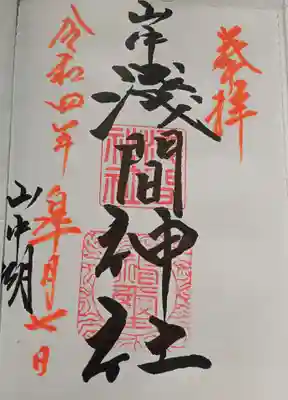 奉拝
山中
淺間神社
令和四年
皐月七日
山中湖